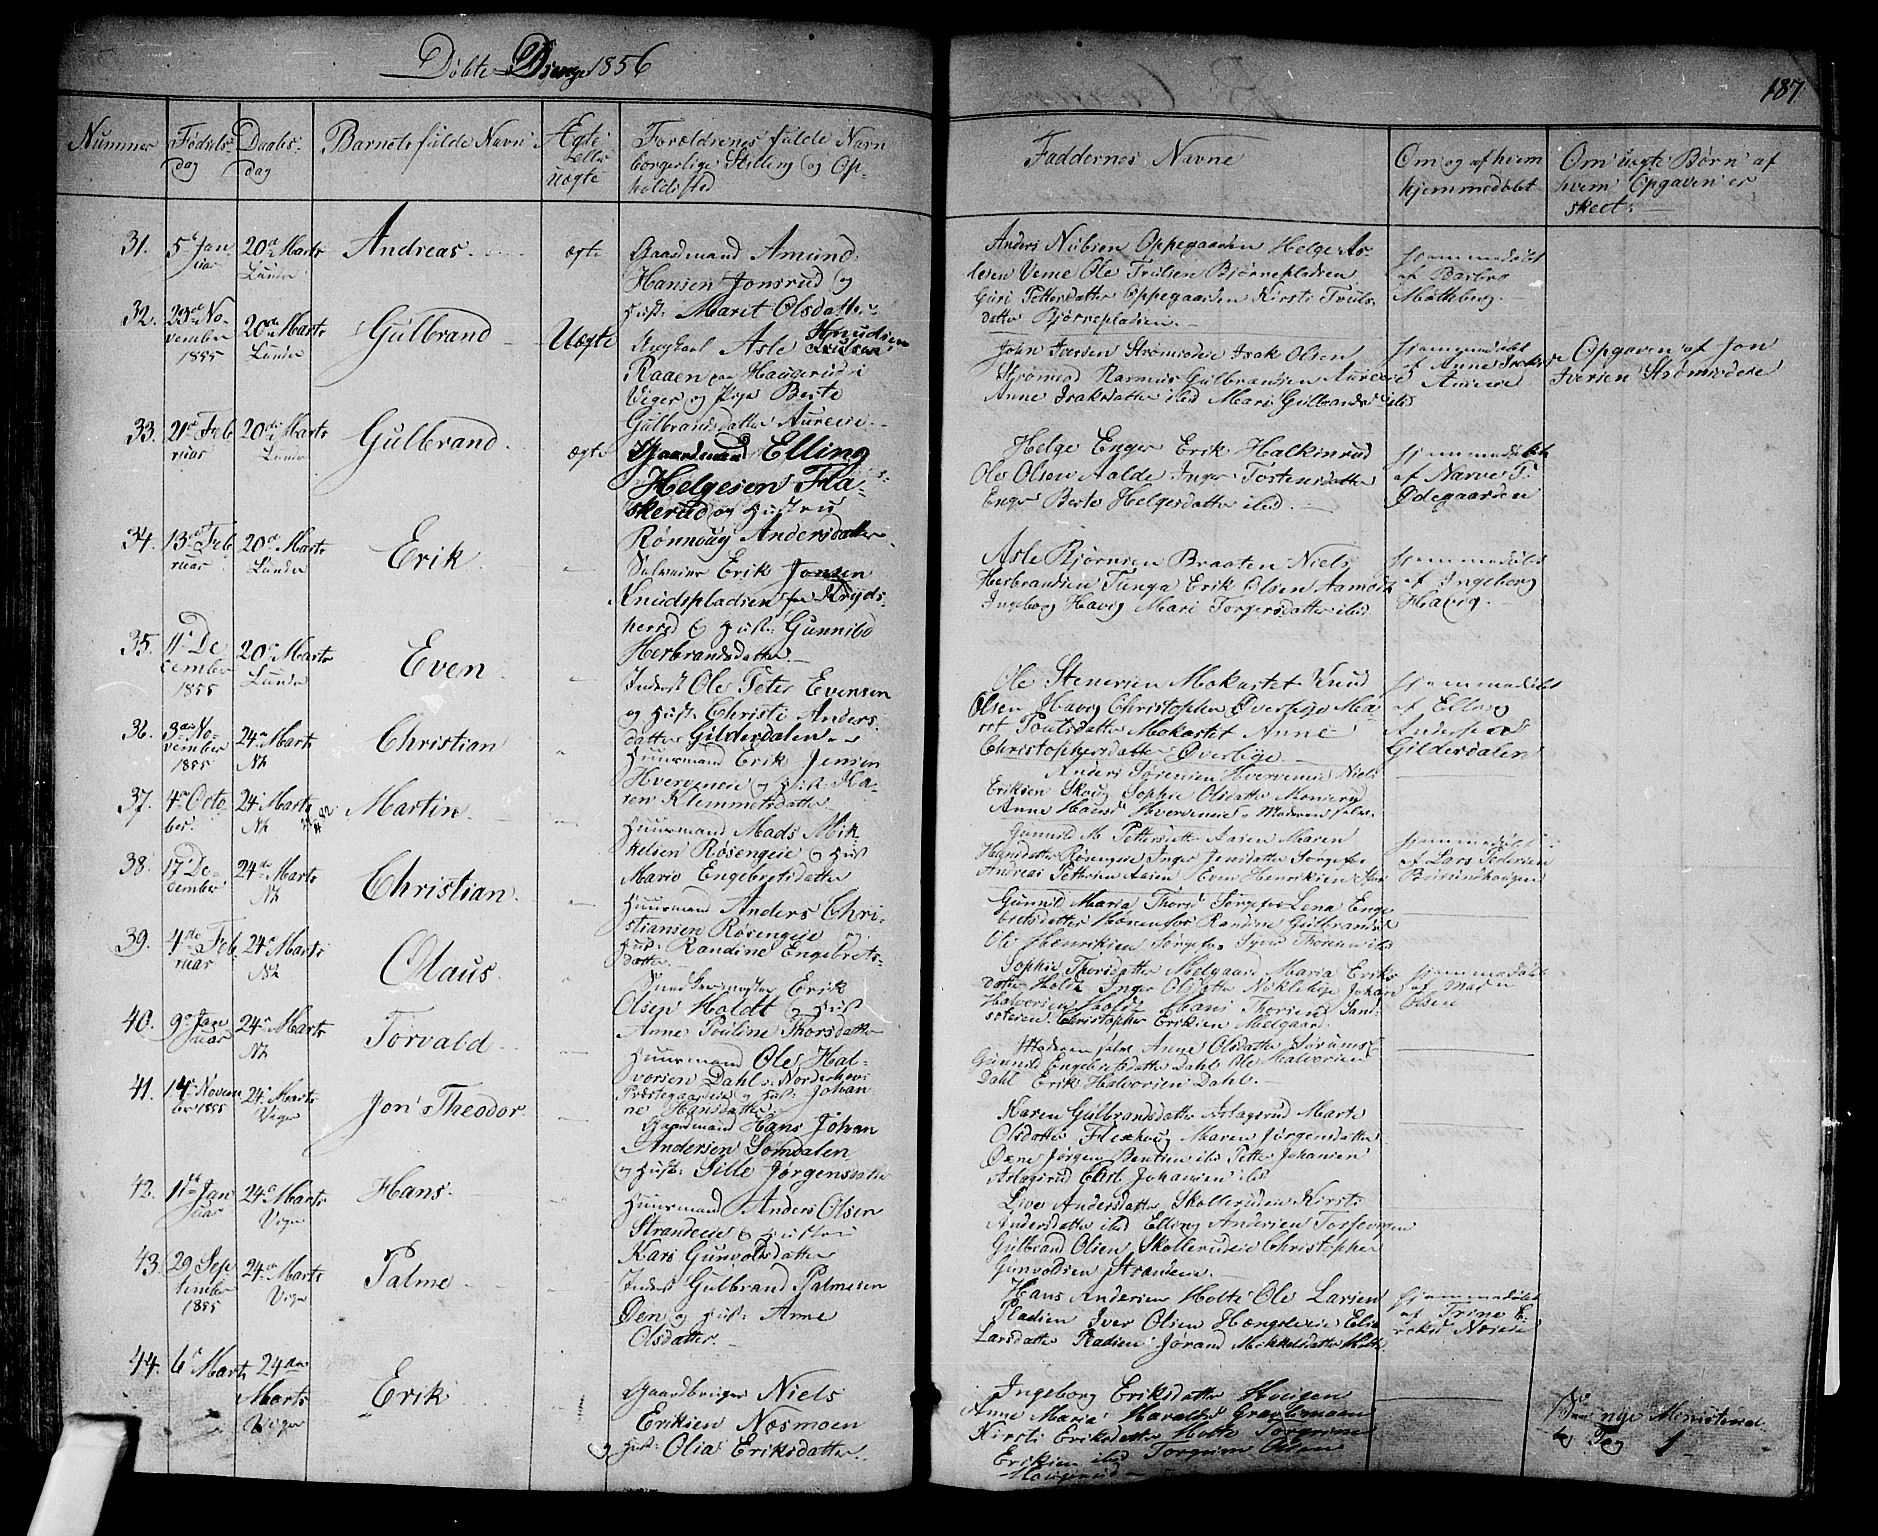 Døbte Drenge 1856
187
Nummer
Fødsels-
dag
Daabs-
dag
Barnets fulde Navn
Ægte
eller
uægte
Forældrenes fulde Navn
borgerlige Stilling og Op-
holdssted
Faddernes Navne
Om og af hvem
hjemmedøbt
Om uægte Børn af
hvem Opgaven er
skeet.
31.
5 Jan
uar
20de Marts
Lunder
Andreas
ægte
Gaardmand Amund
Hansen Jonsrud og
Hust: Marit Olsdatter
Anders Nilsen Oppegaarden Helge As-
lesen Veme Ole Trulsen Bjørnepladsen
Guri Pettersdatter Oppegaarden Kirsti Truls-
datter Bjørnepladsen.
Hjemmedøbt
af Barbro
32.
23de No-
vember
1855
20de Marts
Lunder
Gulbrand
Uægte
Ungkarl Asle Knudsen
Raaen paa Haugerud i
Veger og Pige Berte
Gulbrandsdatter Aureeie.
John Iversen Strømsodeie Isak Olsen
Strømsod Rasmus Gulbrandsen Aureeie
Anne Isaksdatter ibd Mari Gulbrandsd ibd
Hjemmedøbt
af Anne Isaksd
Aureeie
Opgaven af Jon
Iversen Strømsodeie
33.
21de Feb
ruar
20de Marts
Lunder
Gulbrand
ægte
Gaardmand Elling
Helgesen Fla-
skerud og Hustru
Rønnoug Andersdatter
Helge Enger Erik Halkinrud
Ole Olsen Aalde Inger Tostensdatter
Enger Berte Helgesdatter ibd.
Hjemmedøbt
af Narve T.
Ødegaarden
34.
13de Feb
ruar
20de Marts
Lunder
Erik
Selveier Erik Jonsen
Knudspladsen fra Kryds-
herred og Hust: Gunnild
Herbrandsdatter.
Asle Bjørnsen Braaten Niels
Herbrandsen Tunga Erik Olsen Aamodt
Ingeborg Havig Mari Torgersdatter ibd
Hjemmedøbt
af Ingeborg
Havig.
35.
11 De
cember
1855
20de Marts
Lunder
Even
Inderst Ole Peter Evensen
og Hust: Christi Anders-
datter Gilderdalen
Ole Stenersen Mokastet Knud
Olsen Havig Christopher Øverlige Ma-
rit Poulsdatter Mokastet Anne
Christophersdatter Øverlige
Hjemmedøbt
af Elling
Andersen
Gilderdalen
36.
3die No-
vember
1855
24de Marts
Nk
Christian
Huusmand Erik Jensen
Hverveneie og Hust. Ka-
ren Klemmetsdatter
Anders Sørensen Hverveneie Niels
Eriksen Skoug Sophie Olsdatter
Anne Hansd Hverveneie Moderen selv.
37.
4de Octo
ber.
24de Marts
Nk
Martin
Huusmand Mads Mik
kelsen Røseneie og Hust
Marie Engebretsdatter
Gunnild M. Pettersdatter Aasen Maren
Hansdatter Røseneie Inger Jensdatter Sorgefos
Andreas Pettersen Aasen Even Henriksen
Hjemmedøbt
af Lars Pedersen
38.
17 De-
cember
24de Marts
Nk
Christian
Huusmand Anders Chri-
stiansen Røseneie og
Hust: Randine Engebrets-
datter
Gunnild Maria Thorsd Sorgefos Lena Enge
bretsdatter Hønenfos Randine Gulbrandsd
Ole Henriksen Sorgefos Syver Thoresen ibd
39.
4de Feb
ruar
24de Marts
Nk
Olaus
Huusmand Erik
Olsen Holdt og Hust
Anne Pouline Thorsdatter
Sophie Thorsdatter Melgaard Maria Eriks-
datter Holdt Inger Olsdatter Nikleby Johan
Halvorsen Holdt Hans Thorsen Sand-
steren Christopher Eriksen Melgaard.
Hjemmedøbt
af Maren
Olsen
40.
9de Jan
uar
24de Marts
Nk
Torvald
Huusmand Ole Hal-
vorsen Dahl Norderhovs
Præstegaardseie og Hust: Johan
ne Hansdatter
Moderen selv Anne Olsdatter
Gunnild Engebretsdatter Dahl Ole Halvorsen
Dahl Erik Halvorsen Dahl.
41.
14de Novem
ber 1855
24de Marts
Viger
Jon Theodor
Gaardmand Hans Johan
Andersen Somdalen
og Hust: Sille Jørgensdatter
Karen Gulbrandsdatter Aslagsrud Marte
Olsdatter Flexhoug Maren Jørgensdatter
Oxne Jørgen Bentsen ibd Petter Johansen
Aslagsrud Edv. Johansen ibd
42.
11te Jan
uar
24de Marts
Viger
Hans
Huusmand Anders Olsen
Strandeie og Hustru
Kari Gunvoldsdatter
Live Andersdatter Skollerudeie Kirsti
Andersdatter ibd Elling Andersen
Gulbrand Olsen Skollerudeie Christopher
Gunvoldsen Strandeie.
43.
29 Sep
tember
1855
24de Marts
Viger
Palme
Inderst Gulbrand Palmesen
Den og Hust: Anne
Olsdatter.
Hans Andersen Holte Ole Larsen
Pladsen Iver Olsen Hængsleeie Elia
Larsdatter Pladsen Jørand Mikkelsdatter Holte
Hjemmedøbt
af Trine E-
44.
6 Marts
24de
Marts
Viger
Erik
Gaardbruger Niels
Eriksen Næsmoen
og Hust: Olia Eriksdatter.
Ingeborg Eriksdatter Hougen
Anne Maria Haraldsd Gravlimoen
Kirsti Eriksdatter Holte Torgrim
Eriksen ibd Torgrim Olsen
Hougerud
Den nye Ministerial
bog Pag 1